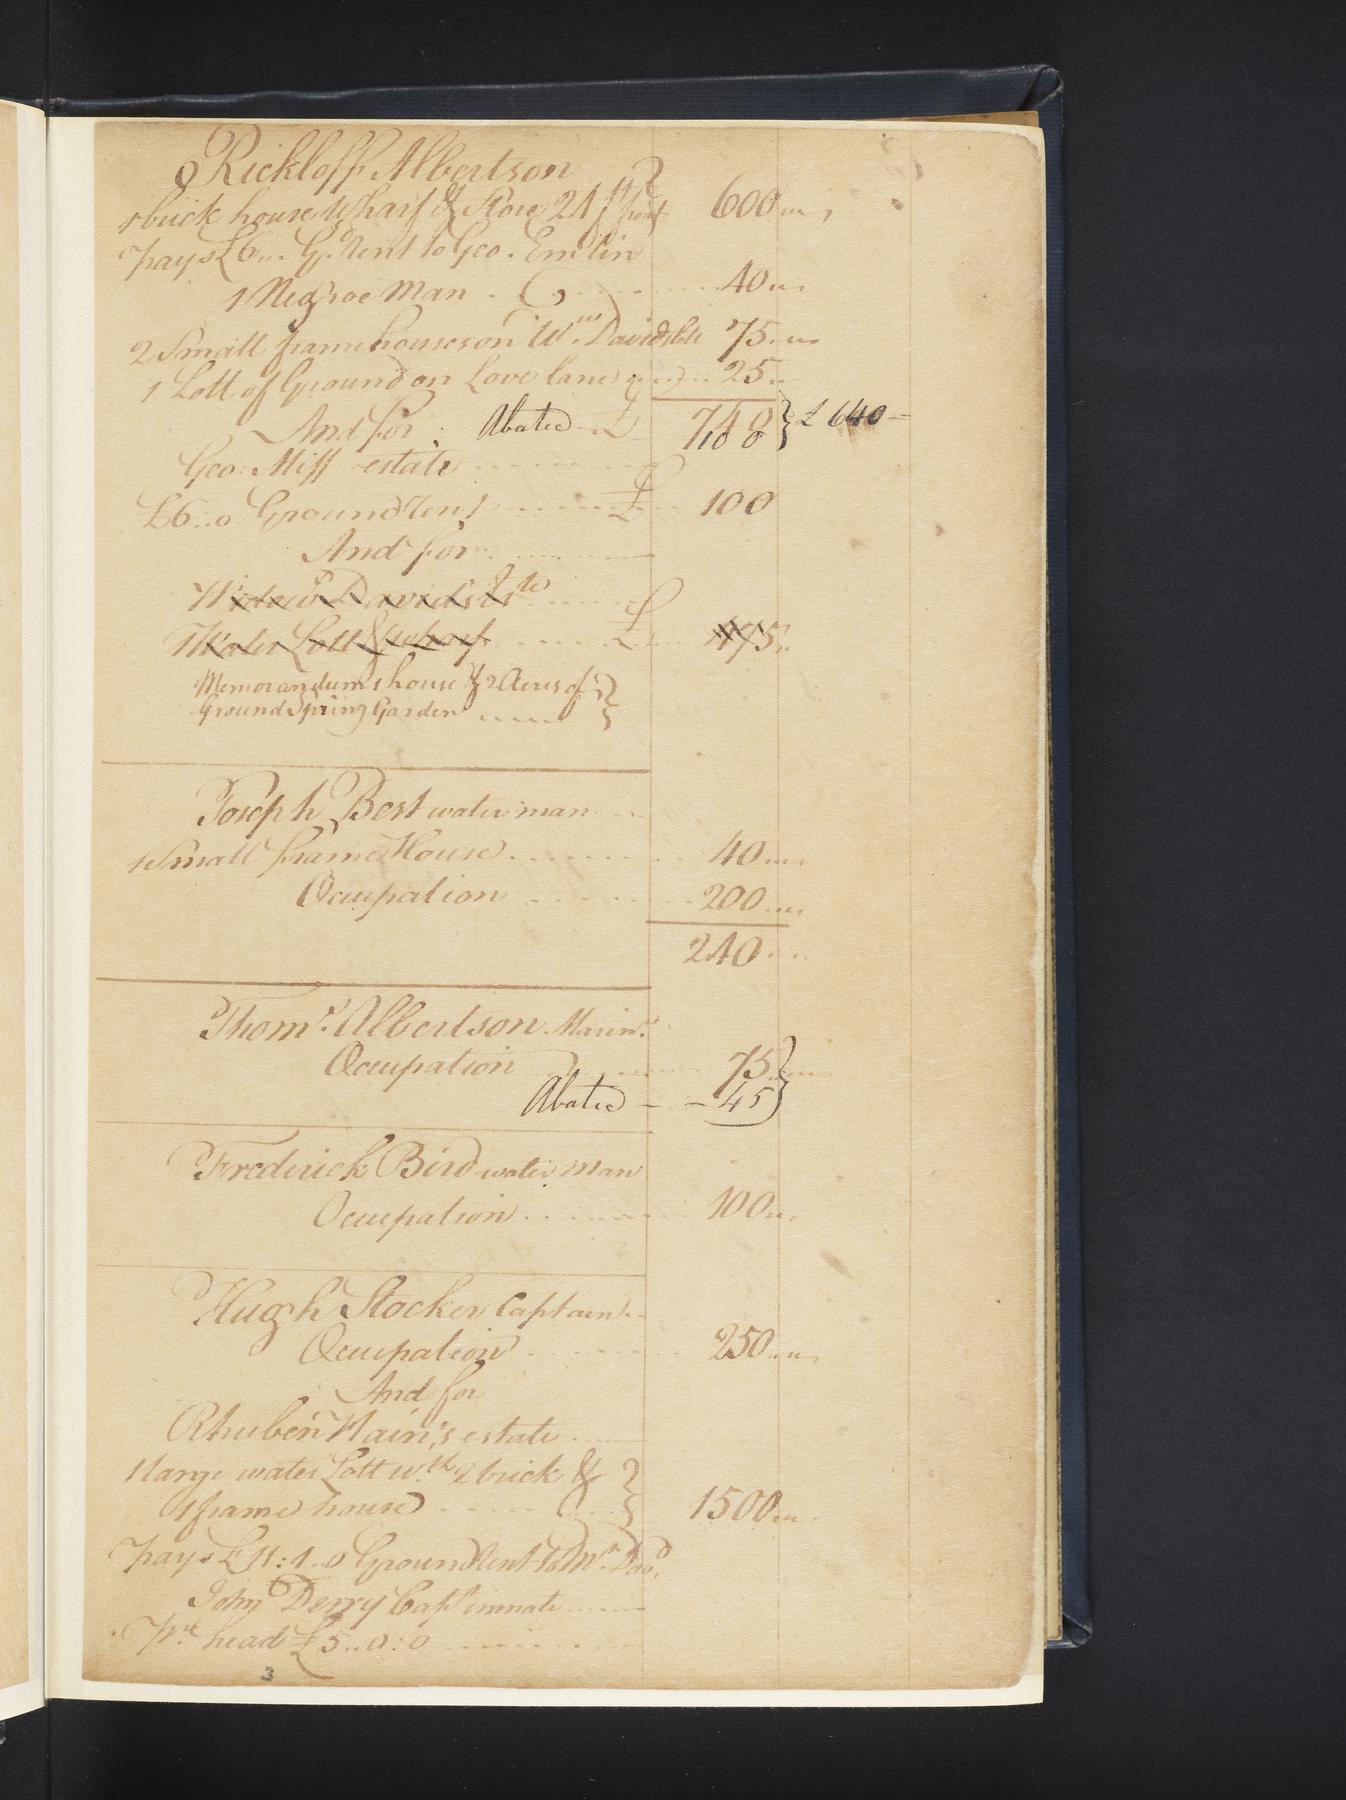 Rickloff Albertson
1 brick house Wharf & Store 24 ft front 600
pays £6 Gd. Rent to Geo. Emlin
1 Negroe Man 40
2 Small frame houses on Wm. Davids 75
1 Lott of Ground on Love lane 25
And for Abated £ 748 } £ 640
100
Geo: Miff estate
£6..0 Ground rent £ 100
And for
Widow Davids Este
1 Water Lott & wharf £ 475
Memorandum 1 house & 2 Acres of
Ground Spring Garden
Joseph Best water man
1 Small frame House 40
Ocupation 200
240
Thoms. Albertson Marinr.
Ocupation 75
Abated 45
Frederick Bird water man
Ocupation 100
Hugh Stocker Captain
Ocupation 250
And for
Rhuben Hain's estate
1 large water Lott wth. 2 brick &
1 frame house 1500
pays £11:1..0 Ground rent to
John Derry Capt inmate
Pr. head £5..0:0
3